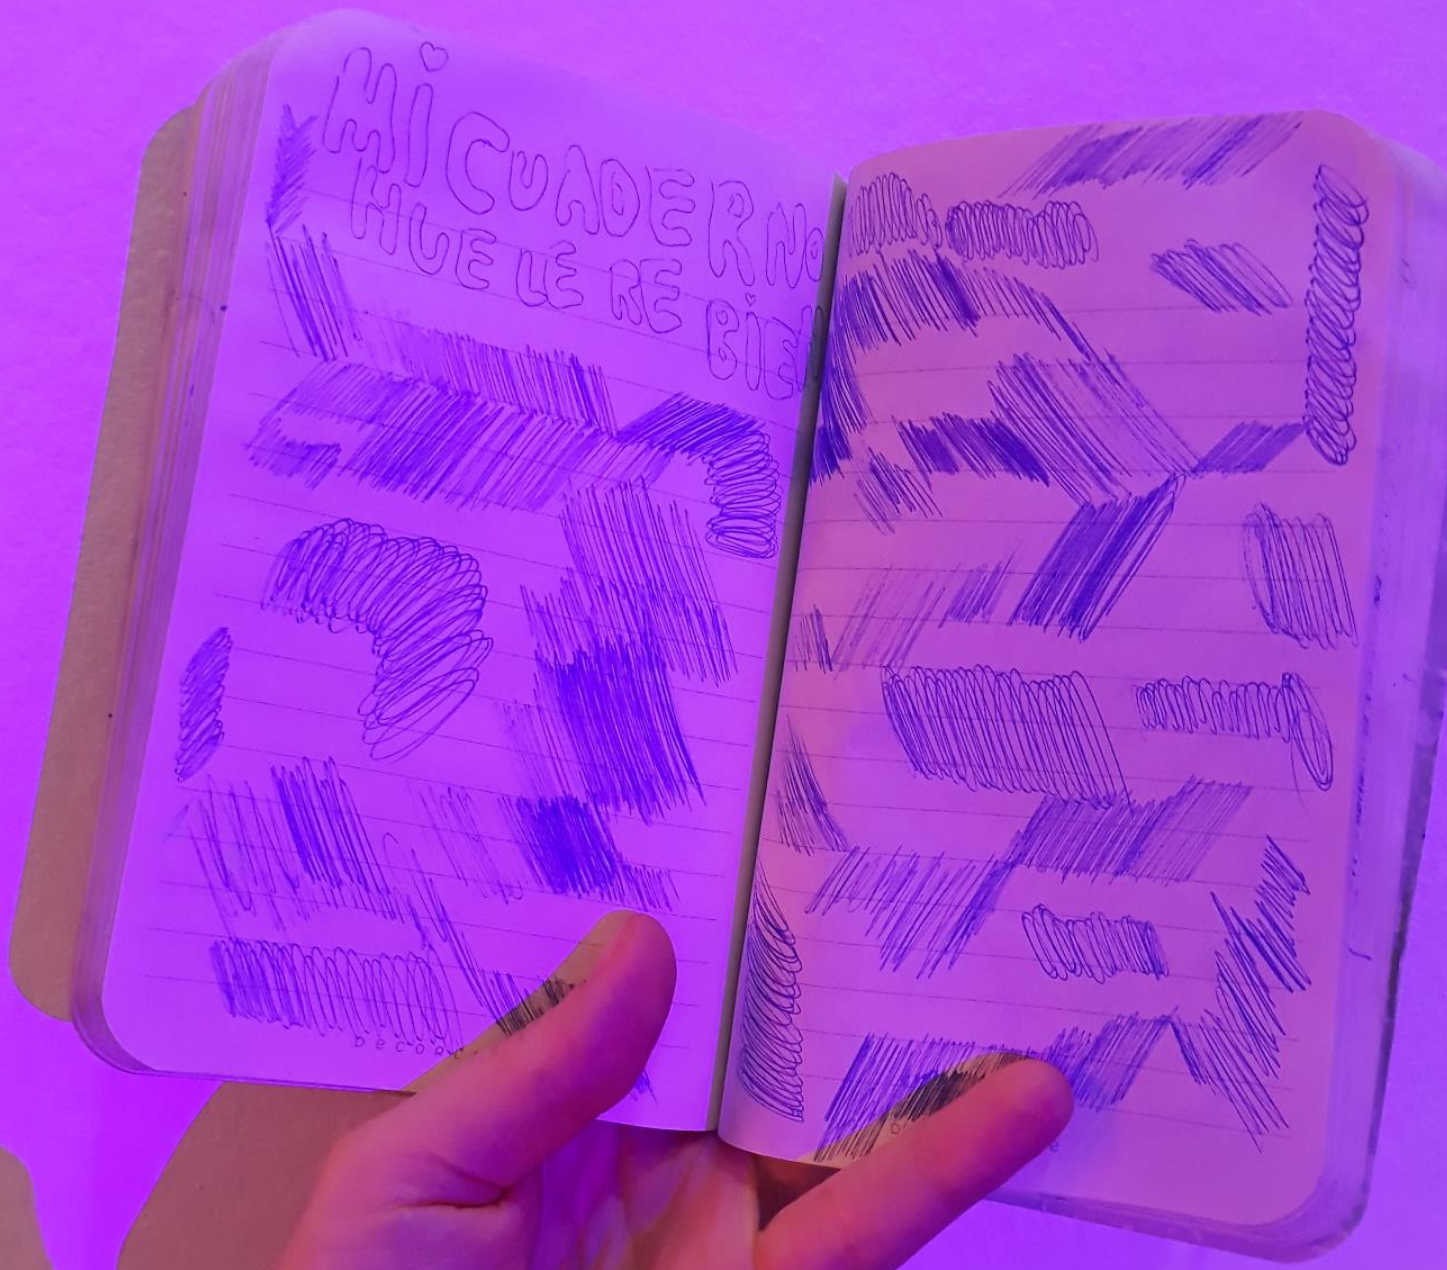 MI CUADERNO
HUELÉ RE
BIEN